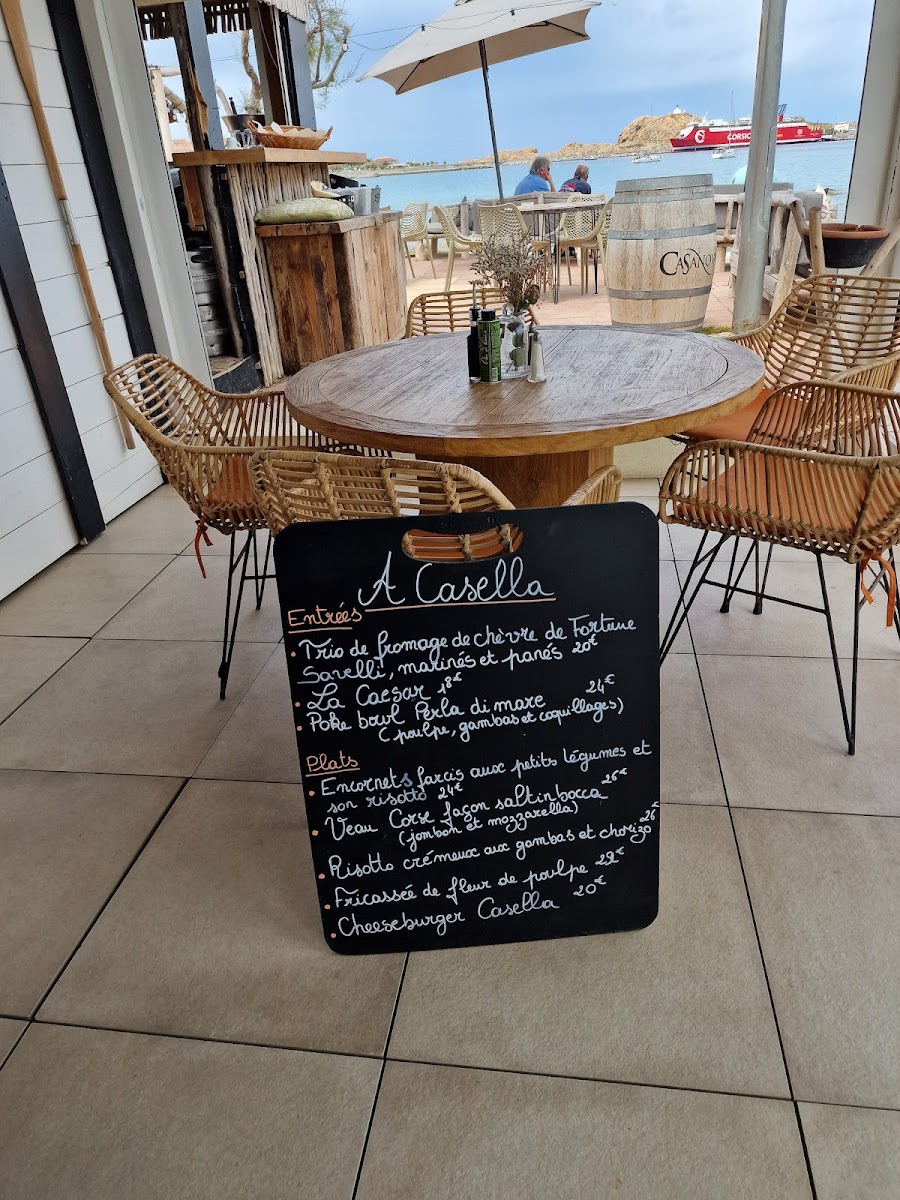 CORSIC
CASANO
A Casella
Entrées
• Trio de fromage de chèvre de Fortune
Savelli, marinés et panés 20€
• La Caesar 18€
• Poke bowl Perla di mare 24€
(poulpe, gambas et coquillages)
Plats
• Encornets farcis aux petits légumes et
son risotto 24€
• Veau Corse façon saltinbocca 26€
(jambon et mozzarella)
• Risotto crémeux aux gambas et chorizo 26
• Fricassée de fleur de poulpe 22€
• Cheeseburger Casella 20€